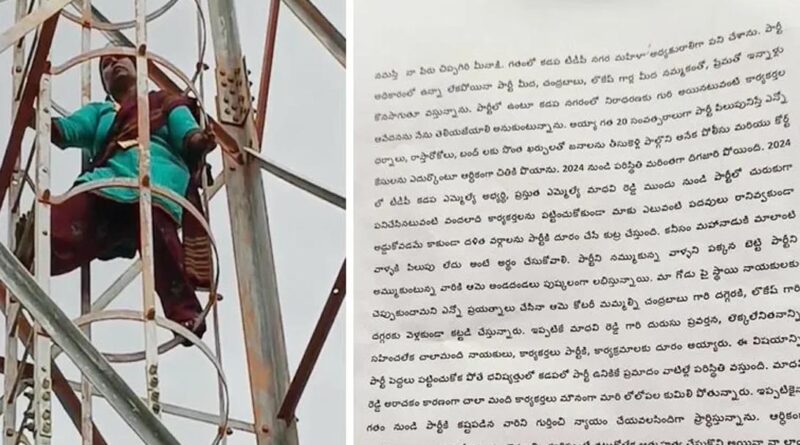 నమస్తే నా పేరు చిప్పగిరి మీనాక్షి. గతంలో కడప టిడిపి నగర మహిళా అధ్యక్షురాలిగా పని చేశాను. పార్టీ
అధికారంలో ఉన్నా లేకపోయినా పార్టీ మీద, చంద్రబాబు, లోకేష్ గార్ల మీద నమ్మకంతో, ప్రేమతో ఇన్నాళ్లు
కొనసాగుతూ వస్తున్నాను. పార్టీలో ఉంటూ కడప నగరంలో నిరాధరణకు గురి అయినటువంటి కార్యకర్తల
ఆవేదనను నేను తెలియజేయాలి అనుకుంటున్నాను. అయ్యా గత 20 సంవత్సరాలుగా పార్టీ పిలుపునిస్తే ఎన్నో
ధర్నాలు, రాస్తారోకోలు, బంద్ లకు సొంత ఖర్చులతో జనాలను తీసుకెళ్లి పాల్గొని అనేక పోలీసు మరియు కోర్ట్
కేసులను ఎదుర్కొంటూ ఆర్థికంగా చితికి పోయాను. 2024 నుండి పరిస్థితి మరింతగా దిగజారి పోయింది. 2024
లో టిడిపి కడప ఎమ్మెల్యే అభ్యర్థి, ప్రస్తుత ఎమ్మెల్యే మాధవి రెడ్డి ముందు నుండి పార్టీలో చురుకుగా
పనిచేసినటువంటి వందలాది కార్యకర్తలను పట్టించుకోకుండా మాకు ఎటువంటి పదవులు రానివ్వకుండా
అడ్డుకోవడమే కాకుండా దళిత వర్గాలను పార్టీకి దూరం చేసే కుట్ర చేస్తుంది. కనీసం మహానాడుకి మాలాంటి
వాళ్ళకి పిలుపు లేదు అంటే అర్థం చేసుకోవాలి. పార్టీని నమ్ముకున్న వాళ్ళని పక్కన పెట్టి పార్టీని
అమ్ముకుంటున్న వారికి ఆమె అండదండలు పుష్కలంగా లభిస్తున్నాయి. మా గోడు పై స్థాయి నాయకులకు
చెప్పుకుందామని ఎన్నో ప్రయత్నాలు చేసినా ఆమె కోటరీ మమ్మల్ని చంద్రబాబు గారి దగ్గరకి, లోకేష్ గారి
దగ్గరకు వెళ్లకుండా కట్టడి చేస్తున్నారు. ఇప్పటికే మాధవి రెడ్డి గారి దురుసు ప్రవర్తన, లెక్కలేనితనాన్ని
సహించలేక చాలామంది నాయకులు, కార్యకర్తలు పార్టీకి, కార్యక్రమాలకు దూరం అయ్యారు. ఈ విషయాన్ని
పార్టీ పెద్దలు పట్టించుకోక పోతే భవిష్యత్తులో కడపలో పార్టీ ఉనికికే ప్రమాదం వాటిల్లే పరిస్థితి వస్తుంది. మాధవి
రెడ్డి అరాచకం కారణంగా చాలా మంది కార్యకర్తలు మౌనంగా మారి లోలోపల కుమిలి పోతున్నారు. ఇప్పటికైనా
గతం నుండి పార్టీకి కష్టపడిన వారిని గుర్తించి న్యాయం చేయవలసిందిగా ప్రార్థిస్తున్నాను. ఆర్థికంగా